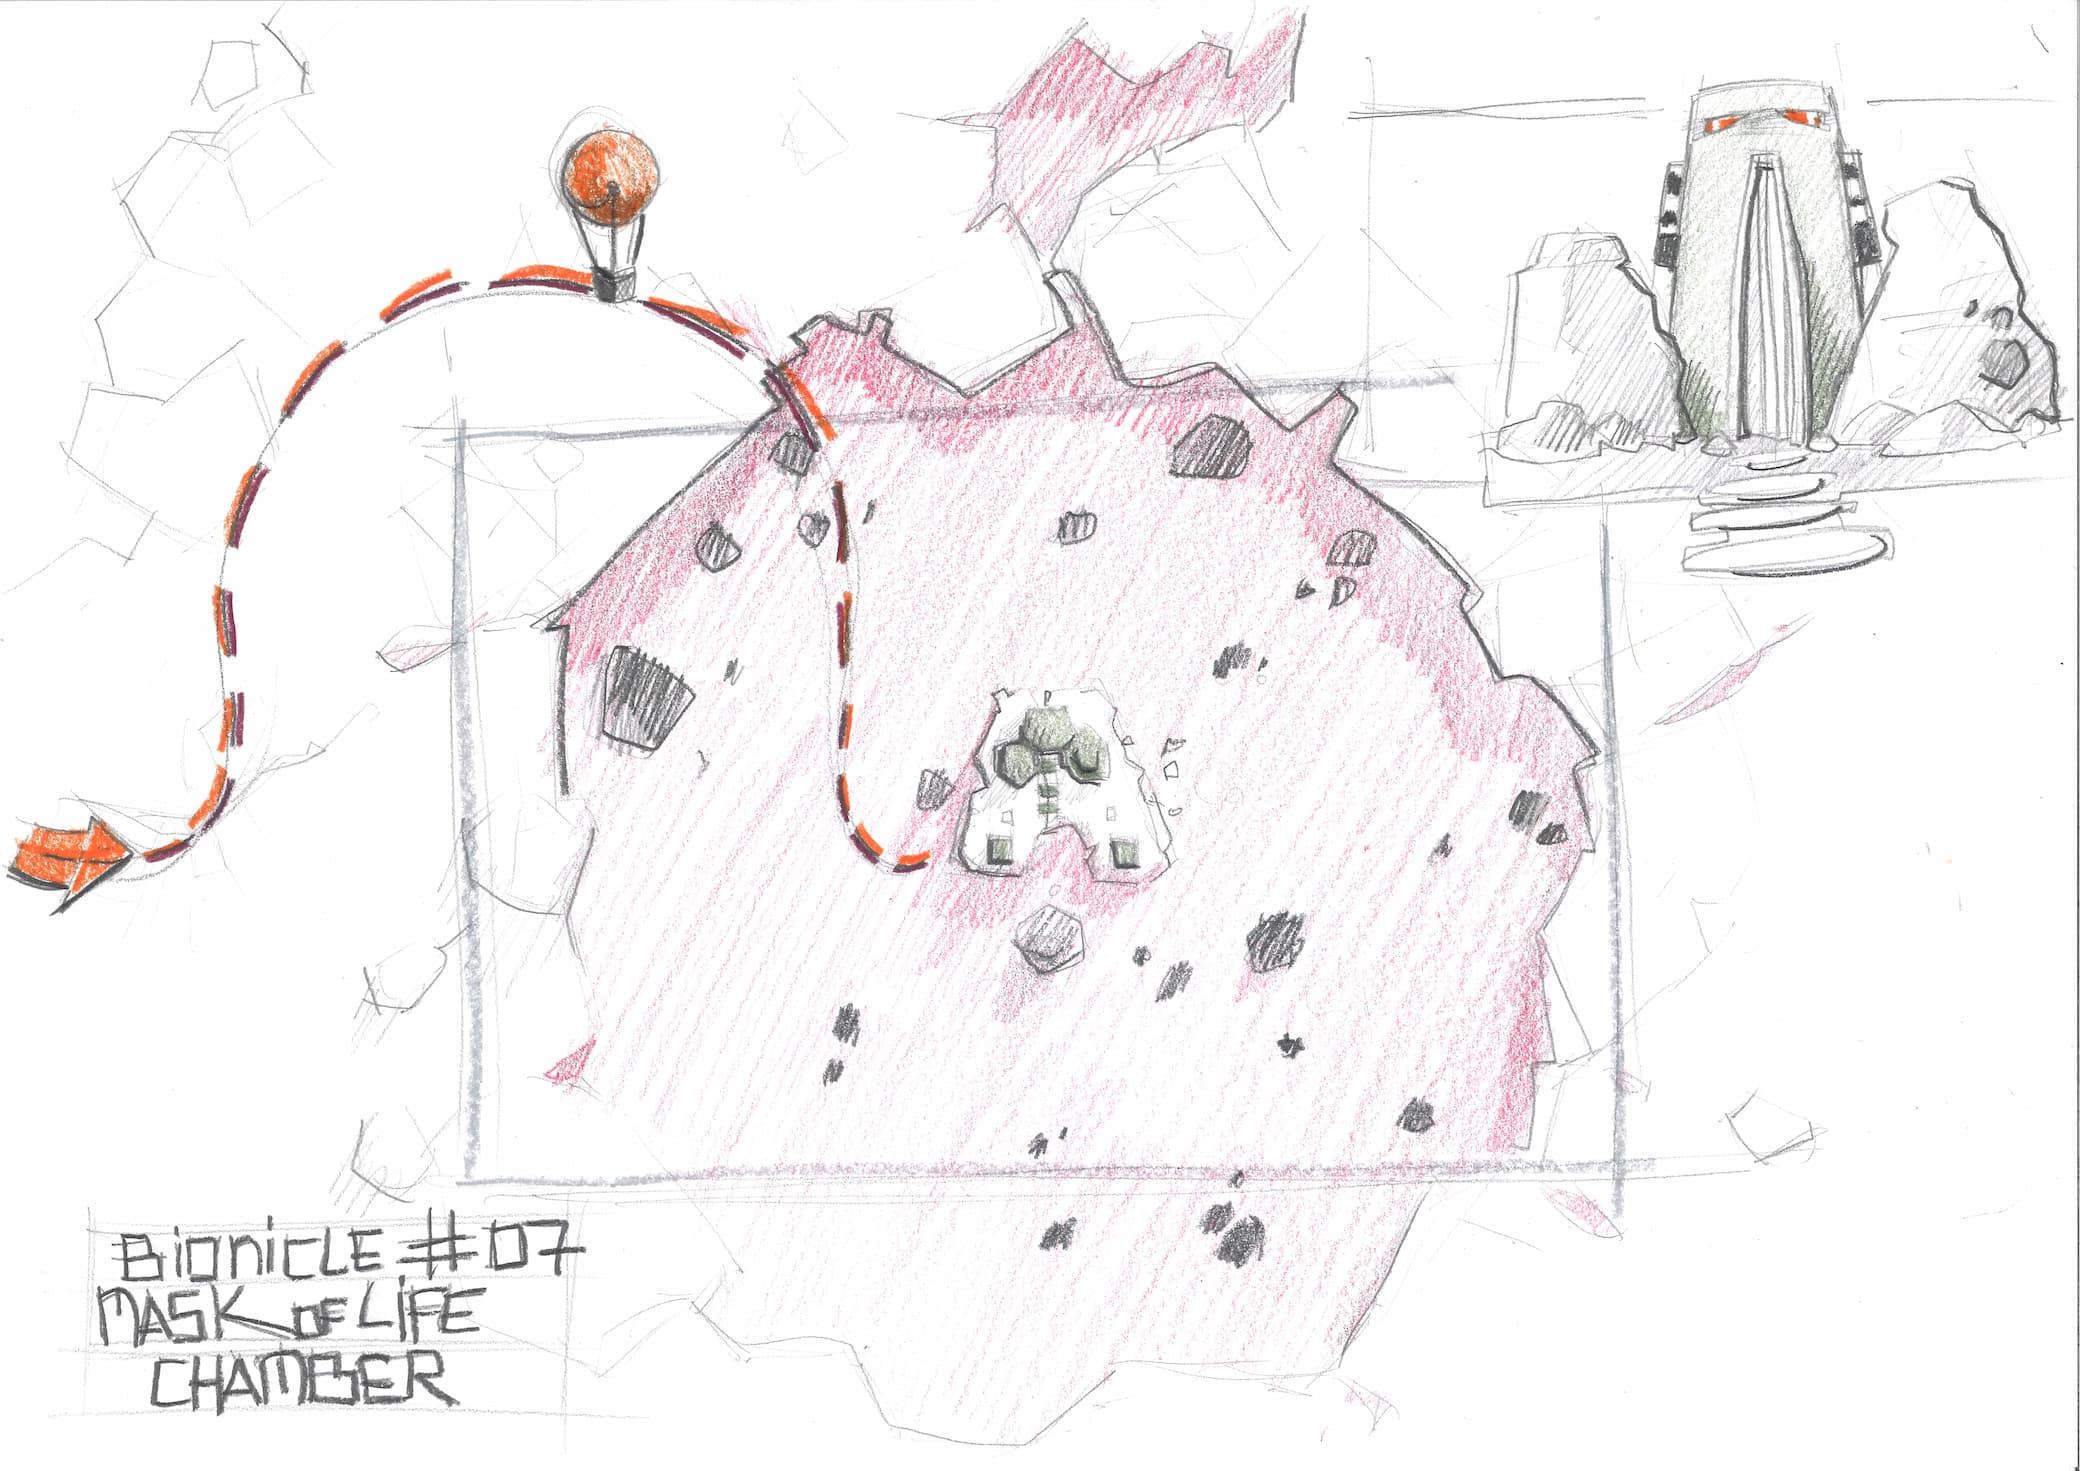 BIONICLE #07
MASK OF LIFE
CHAMBER